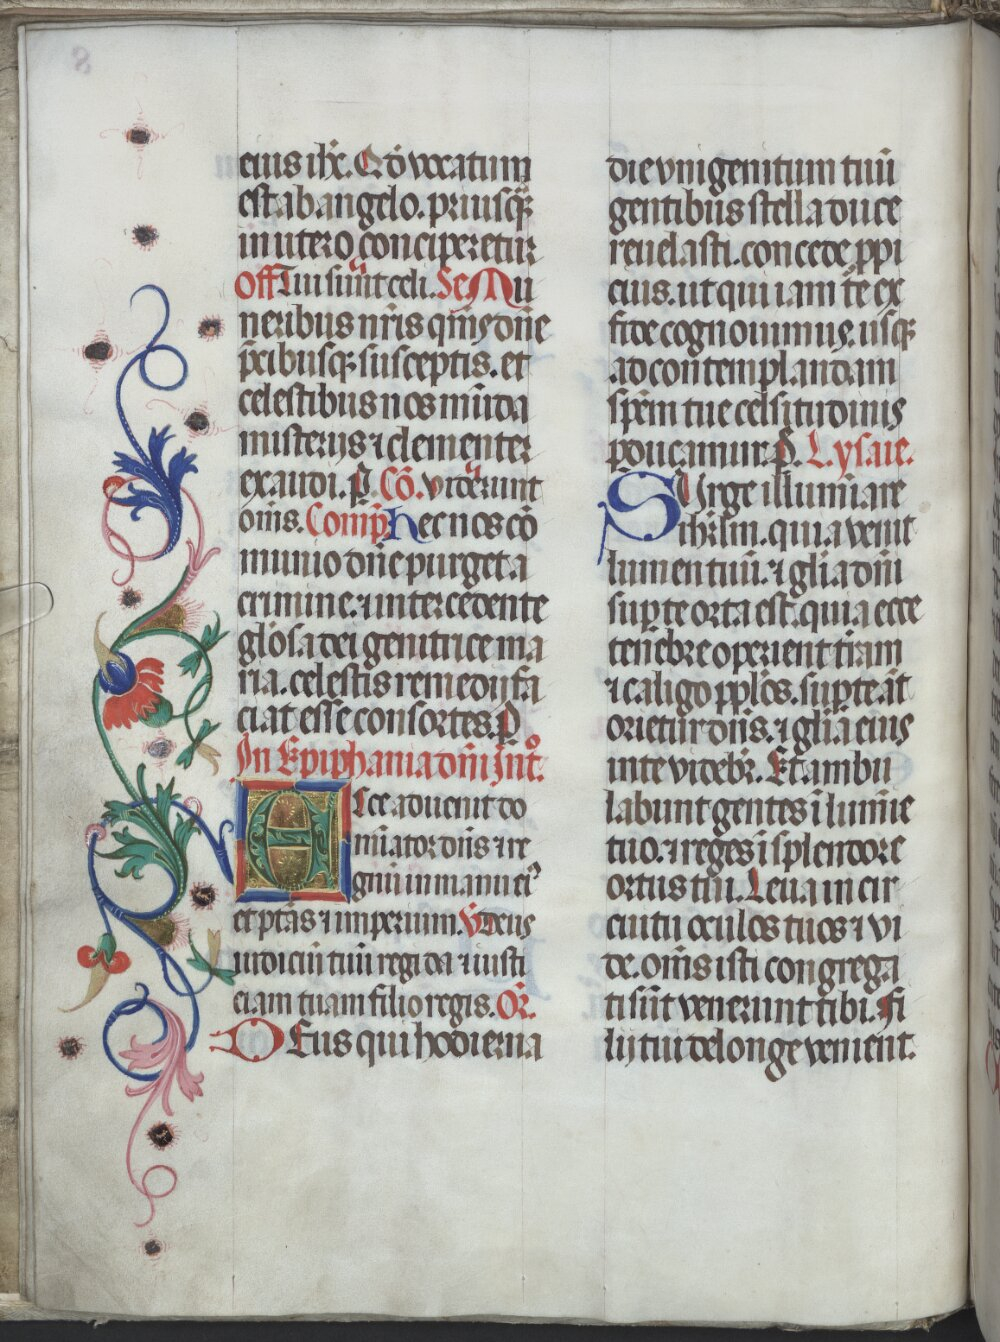 eius ihc. Qđ vocatum
est ab angelo. priusq̄
in utero conciperetur
Off Tui sunt celi. Sec Mu
neribus nr̄is qm̄s dn̄e
p̄cibusq; susceptis. et
celestibus nos mūda
misterijs ⁊ clementer
exaudi. P. Cō. Viderunt
om̄s. Comp̄ Hec nos cō
munio dn̄e purget a
crimine. ⁊ intercedente
gl̄osa dei genitrice ma
ria. celestis remedij fa
ciat esse consortes. P
In Epiphania dn̄i Int͛o.
Ecce aduenit do
minator dn̄s ⁊ re
gnū in manu ei9
et ptās ⁊ imperium. V̄ Deus
iudiciū tuū regi da ⁊ iusti
ciam tuam filio regis. Or̄.
Deus qui hodierna
die vnigenitum tuū
gentibus stella duce
reuelasti. concede ppi
cius. ut qui iam te ex
fide cognouimus. usq;
ad contemplandam
sp̄em tue celsitudinis
pducamur. P. L. ysaie.
Surge illuminare
ihrlm. quia venit
lumen tuū. ⁊ glia dn̄i
sup te orta est. quia ecce
tenebre operient t̄ram
⁊ caligo pplos. sup te āt
orietur dn̄s. ⁊ glia eius
in te videbr̄. Et ambu
labunt gentes ī lumīe
tuo. ⁊ reges ī splendore
ortus tui. Leua in cir
cuitu oculos tuos ⁊ vi
de. om̄s isti congrega
ti sūt venerunt tibi. Fi
lij tui de longe venient.
8